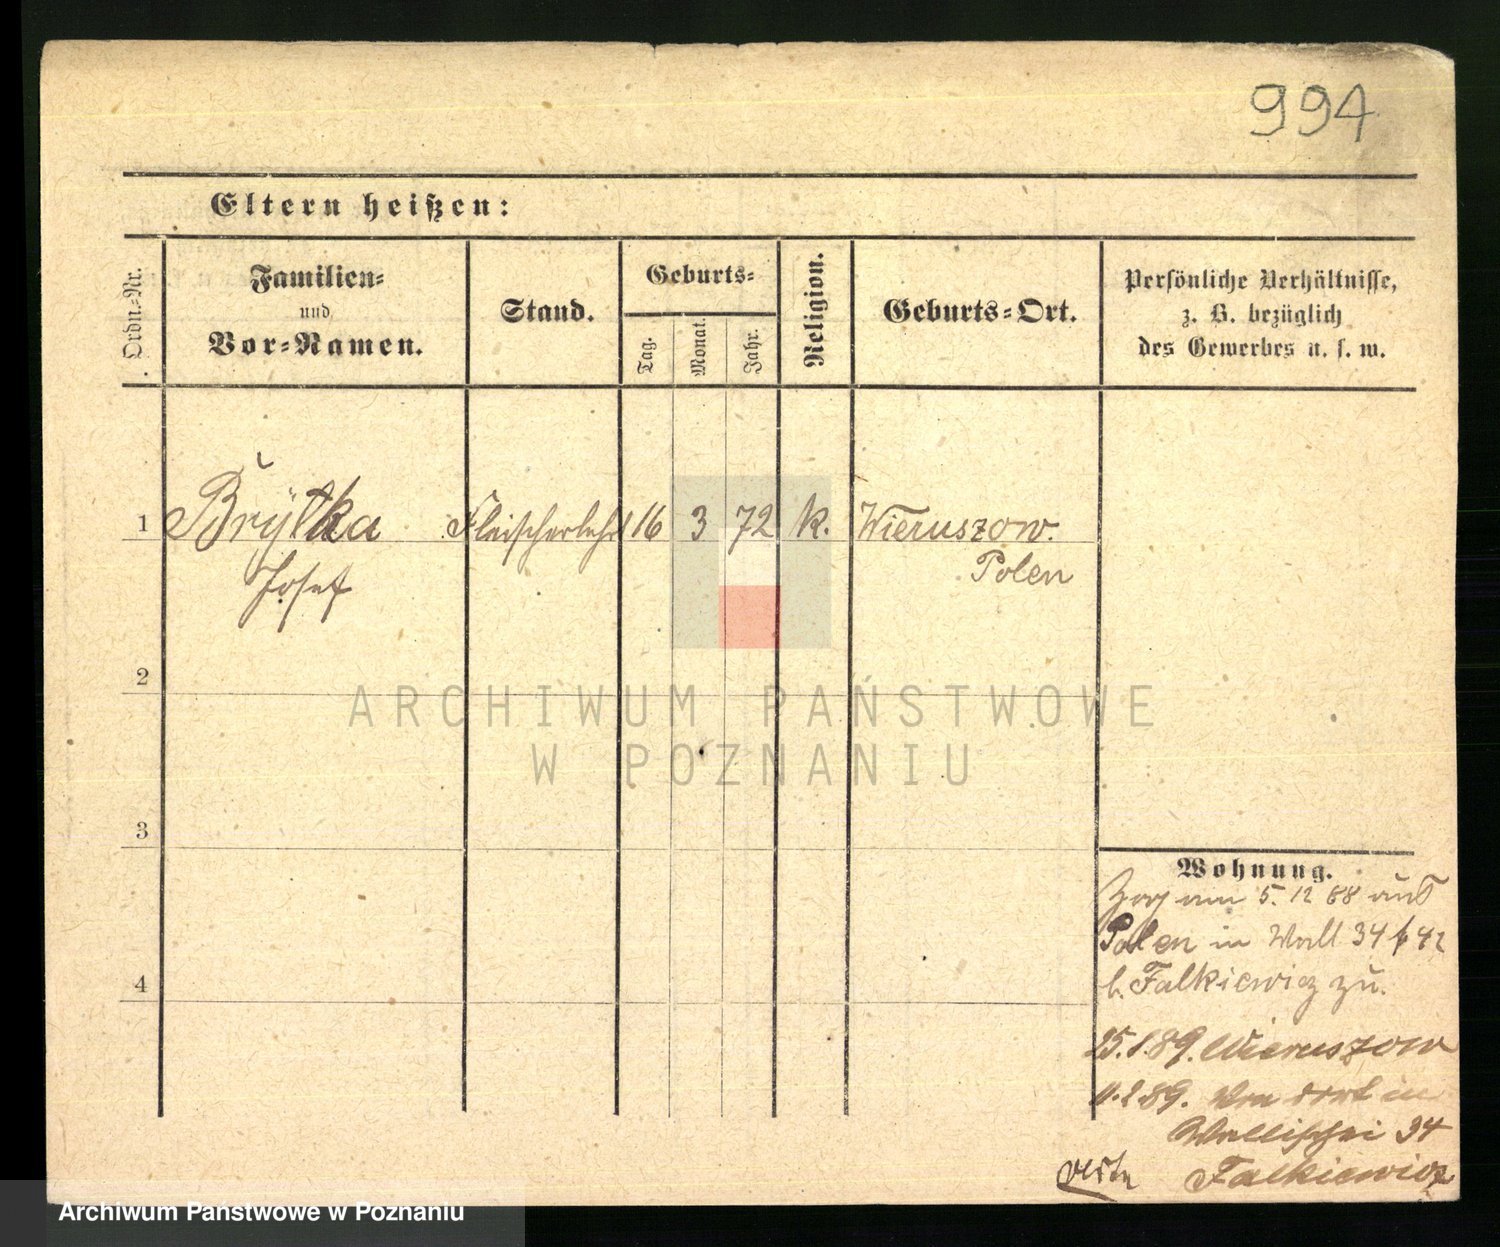 994
Eltern heißen:
Ordn.-Nr.
Familien-
und
Vor-Namen.
Stand.
Geburts-
Tag.
Monat.
Jahr.
Religion.
Geburts-Ort.
Persönliche Verhältnisse,
z. B. bezüglich
des Gewerbes u. s. w.
1 Brÿtka Fleischerlehrl 16 3 72 k. Wieruszow.
Josef Polen
2
ARCHIWUM PAŃSTWOWE
W POZNANIU
3
4
Wohnung.
Zog am 5. 12 88 aus
Polen in Wall 34
b. Falkiewicz zu.
25.1.89. Wieruszow
11.2.89. Von dort in
Wallischei 34
Falkiewicz
Archiwum Państwowe w Poznaniu